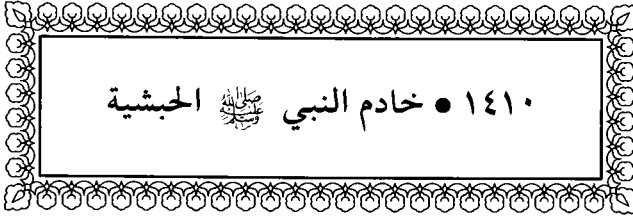 ١٤١٠ • خادم النبي ﷺ الحبشية